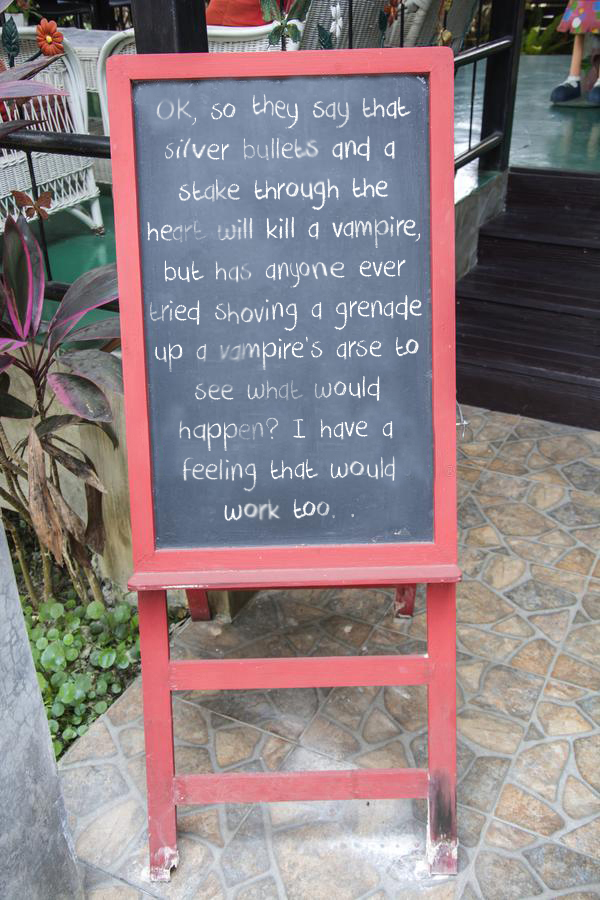 OK, so they say that
silver bullets and a
stake through the
heart will kill a vampire,
but has anyone ever
tried shoving a grenade
up a vampire's arse to
see what would
happen? I have a
feeling that would
work too. . .